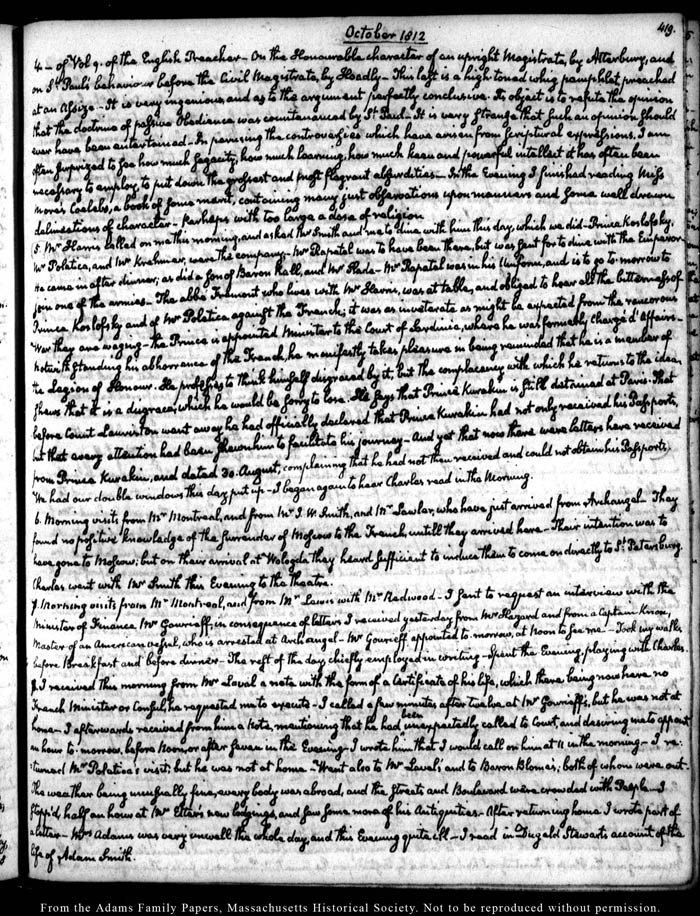 October 1812
419.
4 — of Vol 9. of the English Preacher — On the Honourable character of an upright Magistrate, by Atterbury, and
on St Paul's behaviour before the Civil Magistrate, by Hoadly — This last is a high-toned whig pamphlet, preached
at an Assize — It is very ingenious, and as to the argument perfectly conclusive. Its object is to refute the opinion
that the doctrine of passive Obedience was countenanced by St Paul — It is very strange that such an opinion should
ever have been entertained — In perusing the controversies which have arisen from scriptural expressions, I am
often surprized to see how much sagacity, how much learning, how much keen and powerful intellect it has often been
necessary to employ, to put down the grossest and most flagrant absurdities — In the Evening I finished reading Miss
More's Coelebs, a book of some merit, containing many just observations upon manners and some well drawn
delineations of character — perhaps with too large a dose of religion.
5. Mr Harris called on me this morning, and asked Mr Smith and me to dine with him this day, which we did — Prince Koslofsky,
Mr Poletica, and Mr Krehmer, were the company — Mr Rapatel was to have been there, but was sent for to dine with the Emperor
He came in after dinner; as did a son of Baron Rall, and Mr Slade — Mr Rapatel was in his Uniform, and is to go to-morrow to
join one of the armies — The abbé Fremont who lives with Mr Harris, was at table, and obliged to hear all the bitterness of
Prince Koslofsky and of Mr Poletica against the French; it was as inveterate as might be expected from the rancorous
War they are waging — the Prince is appointed Minister to the Court of Sardinia, where he was formerly Chargé d'affaires —
Notwithstanding his abhorrence of the French, he manifestly takes pleasure in being reminded that he is a member of
the Legion of Honour. He professes to think himself disgraced by it, but the complacency with which he returns to the idea,
shews that it is a disgrace, which he would be sorry to lose. He says that Prince Kurakin is still detained at Paris. That
before Count Lauriston went away he had officially declared that Prince Kurakin had not only received his Passports,
but that every attention had been shewn him to facilitate his journey — And yet that now there were letters have received
from Prince Kurakin, and dated 30. August, complaining that he had not then received and could not obtain his Passports.
We had our double windows this day put up — I began again to hear Charles read in the Morning.
6. Morning visits from Mr Montreal, and from Mr J. W. Smith, and Mr Lawler, who have just arrived from Archangel — They
found no positive knowledge of the surrender of Moscow to the French, untill they arrived here — Their intention was to
have gone to Moscow; but on their arrival at Wologda they heard sufficient to induce them to come on directly to St Petersburg.
Charles went with Mr Smith this Evening to the theatre.
7. Morning visits from Mr Montreal, and from Mr Lewis with Mr Redwood — I sent to request an interview with the
Minister of Finance Mr Gourieff, in consequence of letters I received yesterday from Mr Hazard and from a Captain Knox,
Master of an American vessel, who is arrested at Archangel — Mr Gourieff appointed to-morrow, at Noon to see me — Took my walks
before Breakfast and before dinner — The rest of the day chiefly employed in writing — Spent the Evening, playing with Charles.
8. I received this morning from Mr Laval a note with the form of a Certificate of his life, which there being now here no
French Minister or Consul, he requested me to execute — I called a few minutes after twelve at Mr Gourieff's, but he was not at
home — I afterwards received from him a Note, mentioning that he had been unexpectedly called to Court, and desiring me to appoint
an hour to-morrow, before Noon, or after seven in the Evening — I wrote him that I would call on him at 11 in the morning — I re-
turned Mr Poletica's visit; but he was not at home — Went also to Mr Laval's and to Baron Blome's; both of whom were out —
The weather being unusually fine, every body was abroad, and the Streets and Boulevard were crowded with People — I
stopp'd, half an hour at Mr Etter's new lodgings, and saw some more of his Antiquities — After returning home I wrote part of
a letter — Mrs Adams was very unwell this whole day, and this Evening quite ill — I read in Dugald Stewart's account of the
life of Adam Smith.
From the Adams Family Papers, Massachusetts Historical Society. Not to be reproduced without permission.